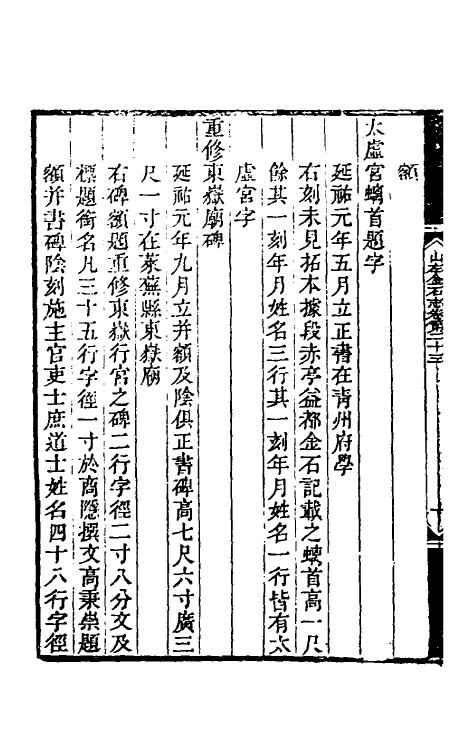 額
太虛宮螭首題字
延祐元年五月立正書在青州府學
右刻未見拓本據段赤亭益都金石記載之螭首高一尺
餘其一刻年月姓名三行其一刻年月姓名一行皆有太
虛宮字
重修東嶽廟碑
延祐元年九月立并額及陰俱正書碑高七尺六寸廣三
尺一寸在萊蕪縣東嶽廟
右碑額題重修東嶽行宮之碑二行字徑二寸八分文及
標題銜名凡三十五行字徑一寸於商隱撰文高秉崇題
額并書碑陰刻施主官吏士庶道士姓名四十八行字徑
山左金石志卷第二十三